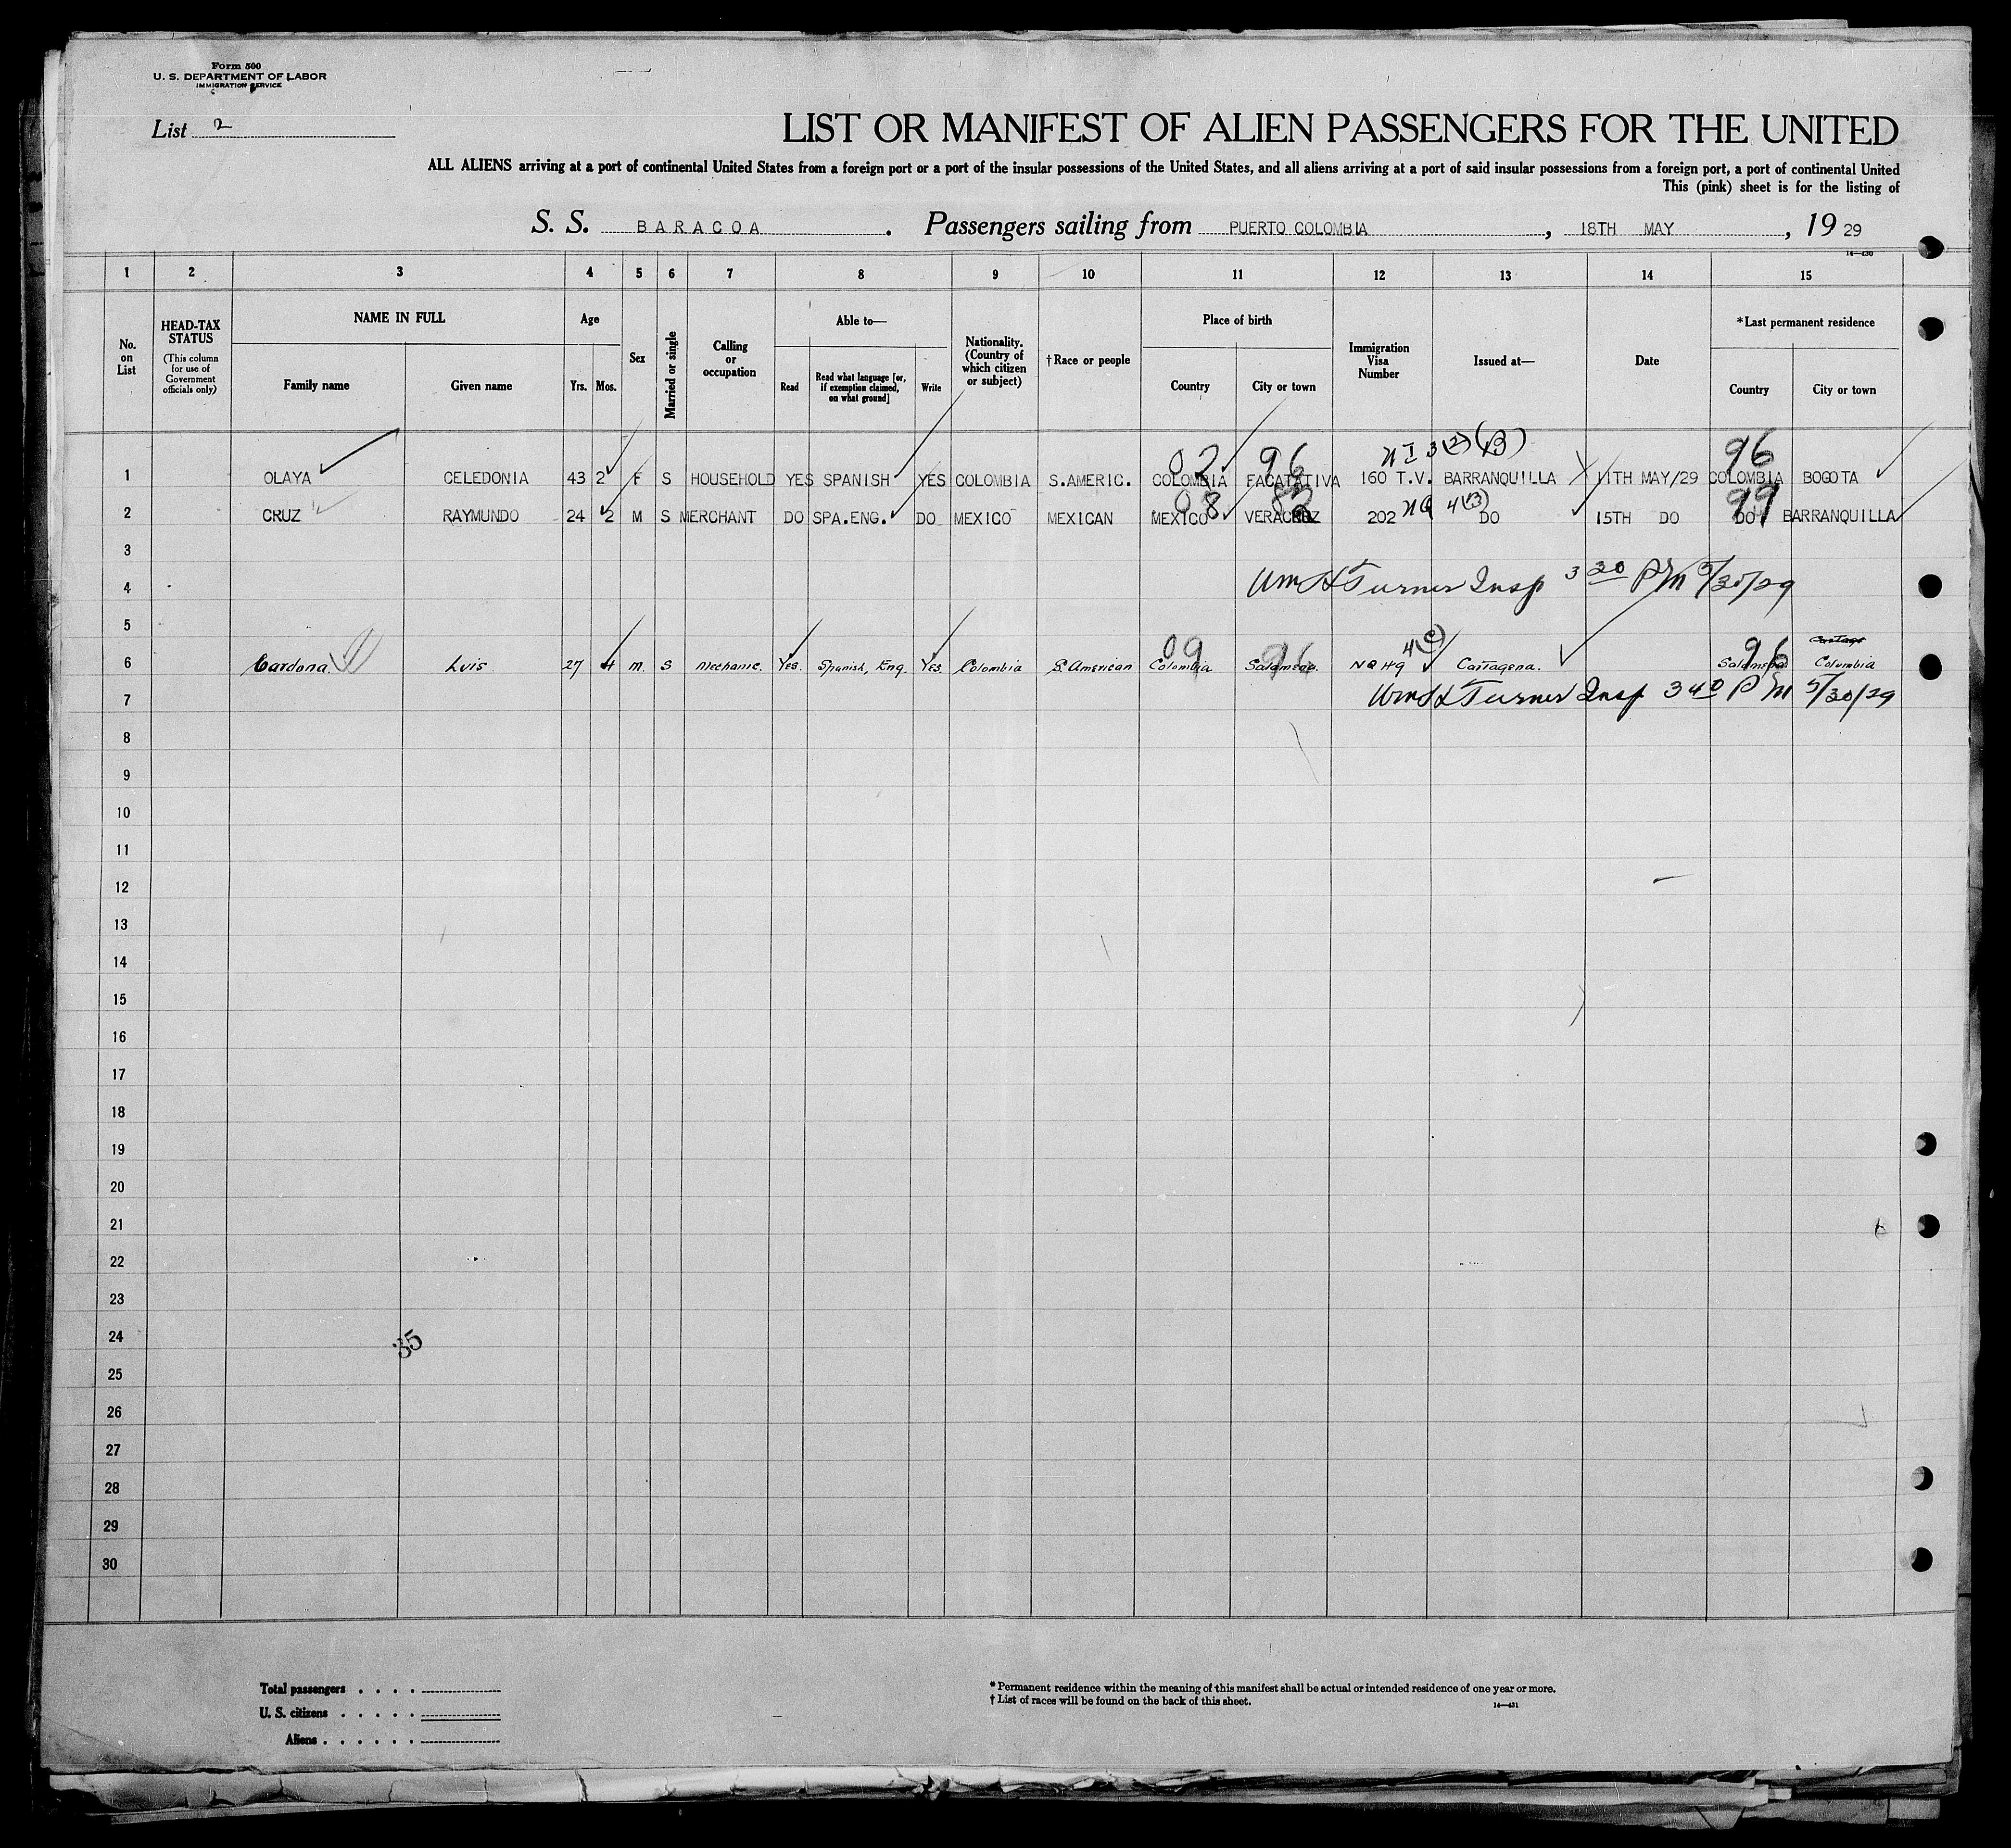 Form 500
U. S. DEPARTMENT OF LABOR
IMMIGRATION SERVICE
List 2
LIST OR MANIFEST OF ALIEN PASSENGERS FOR THE UNITED
ALL ALIENS arriving at a port of continental United States from a foreign port or a port of the insular possessions of the United States, and all aliens arriving at a port of said insular possessions from a foreign port, a port of continental United
This (pink) sheet is for the listing of
S. S. BARACOA. Passengers sailing from PUERTO COLOMBIA, 18TH MAY, 19 29
14—430
1 2 3 4 5 6 7 8 9 10 11 12 13 14 15
No. on List
HEAD-TAX STATUS (This column for use of Government officials only)
NAME IN FULL
Family name Given name
Age
Yrs. Mos.
Sex
Married or single
Calling or occupation
Able to—
Read Read what language [or, if exemption claimed, on what ground] Write
Nationality. (Country of which citizen or subject)
†Race or people
Place of birth
Country City or town
Immigration Visa Number
Issued at—
Date
*Last permanent residence
Country City or town
02 96 N I 3(2)(B) 96
1 OLAYA CELEDONIA 43 2 F S HOUSEHOLD YES SPANISH YES COLOMBIA S.AMERIC. COLOMBIA FACATATIVA 160 T.V. BARRANQUILLA 11TH MAY/29 COLOMBIA BOGOTA
08 99
2 CRUZ RAYMUNDO 24 2 M S MERCHANT DO SPA.ENG. DO MEXICO MEXICAN MEXICO VERACRUZ 202 NQ 4(B) DO 15TH DO DO BARRANQUILLA
3
4 Wm H Turner Insp 3 20 PM 5/30/29
5
09 96 4(c) 96
6 Cardona Luis 27 4 M. S Mechanic. Yes. Spanish, Eng. Yes. Colombia S. American Colombia Salamena. NQ Hq Cartagena. Salamena Columbia
7 Wm H Turner Insp 3 40 PM 5/30/29
8
9
10
11
12
13
14
15
16
17
18
19
20
21
22
23
24
35
25
26
27
28
29
30
Total passengers
U. S. citizens
Aliens
* Permanent residence within the meaning of this manifest shall be actual or intended residence of one year or more.
† List of races will be found on the back of this sheet.
14—431